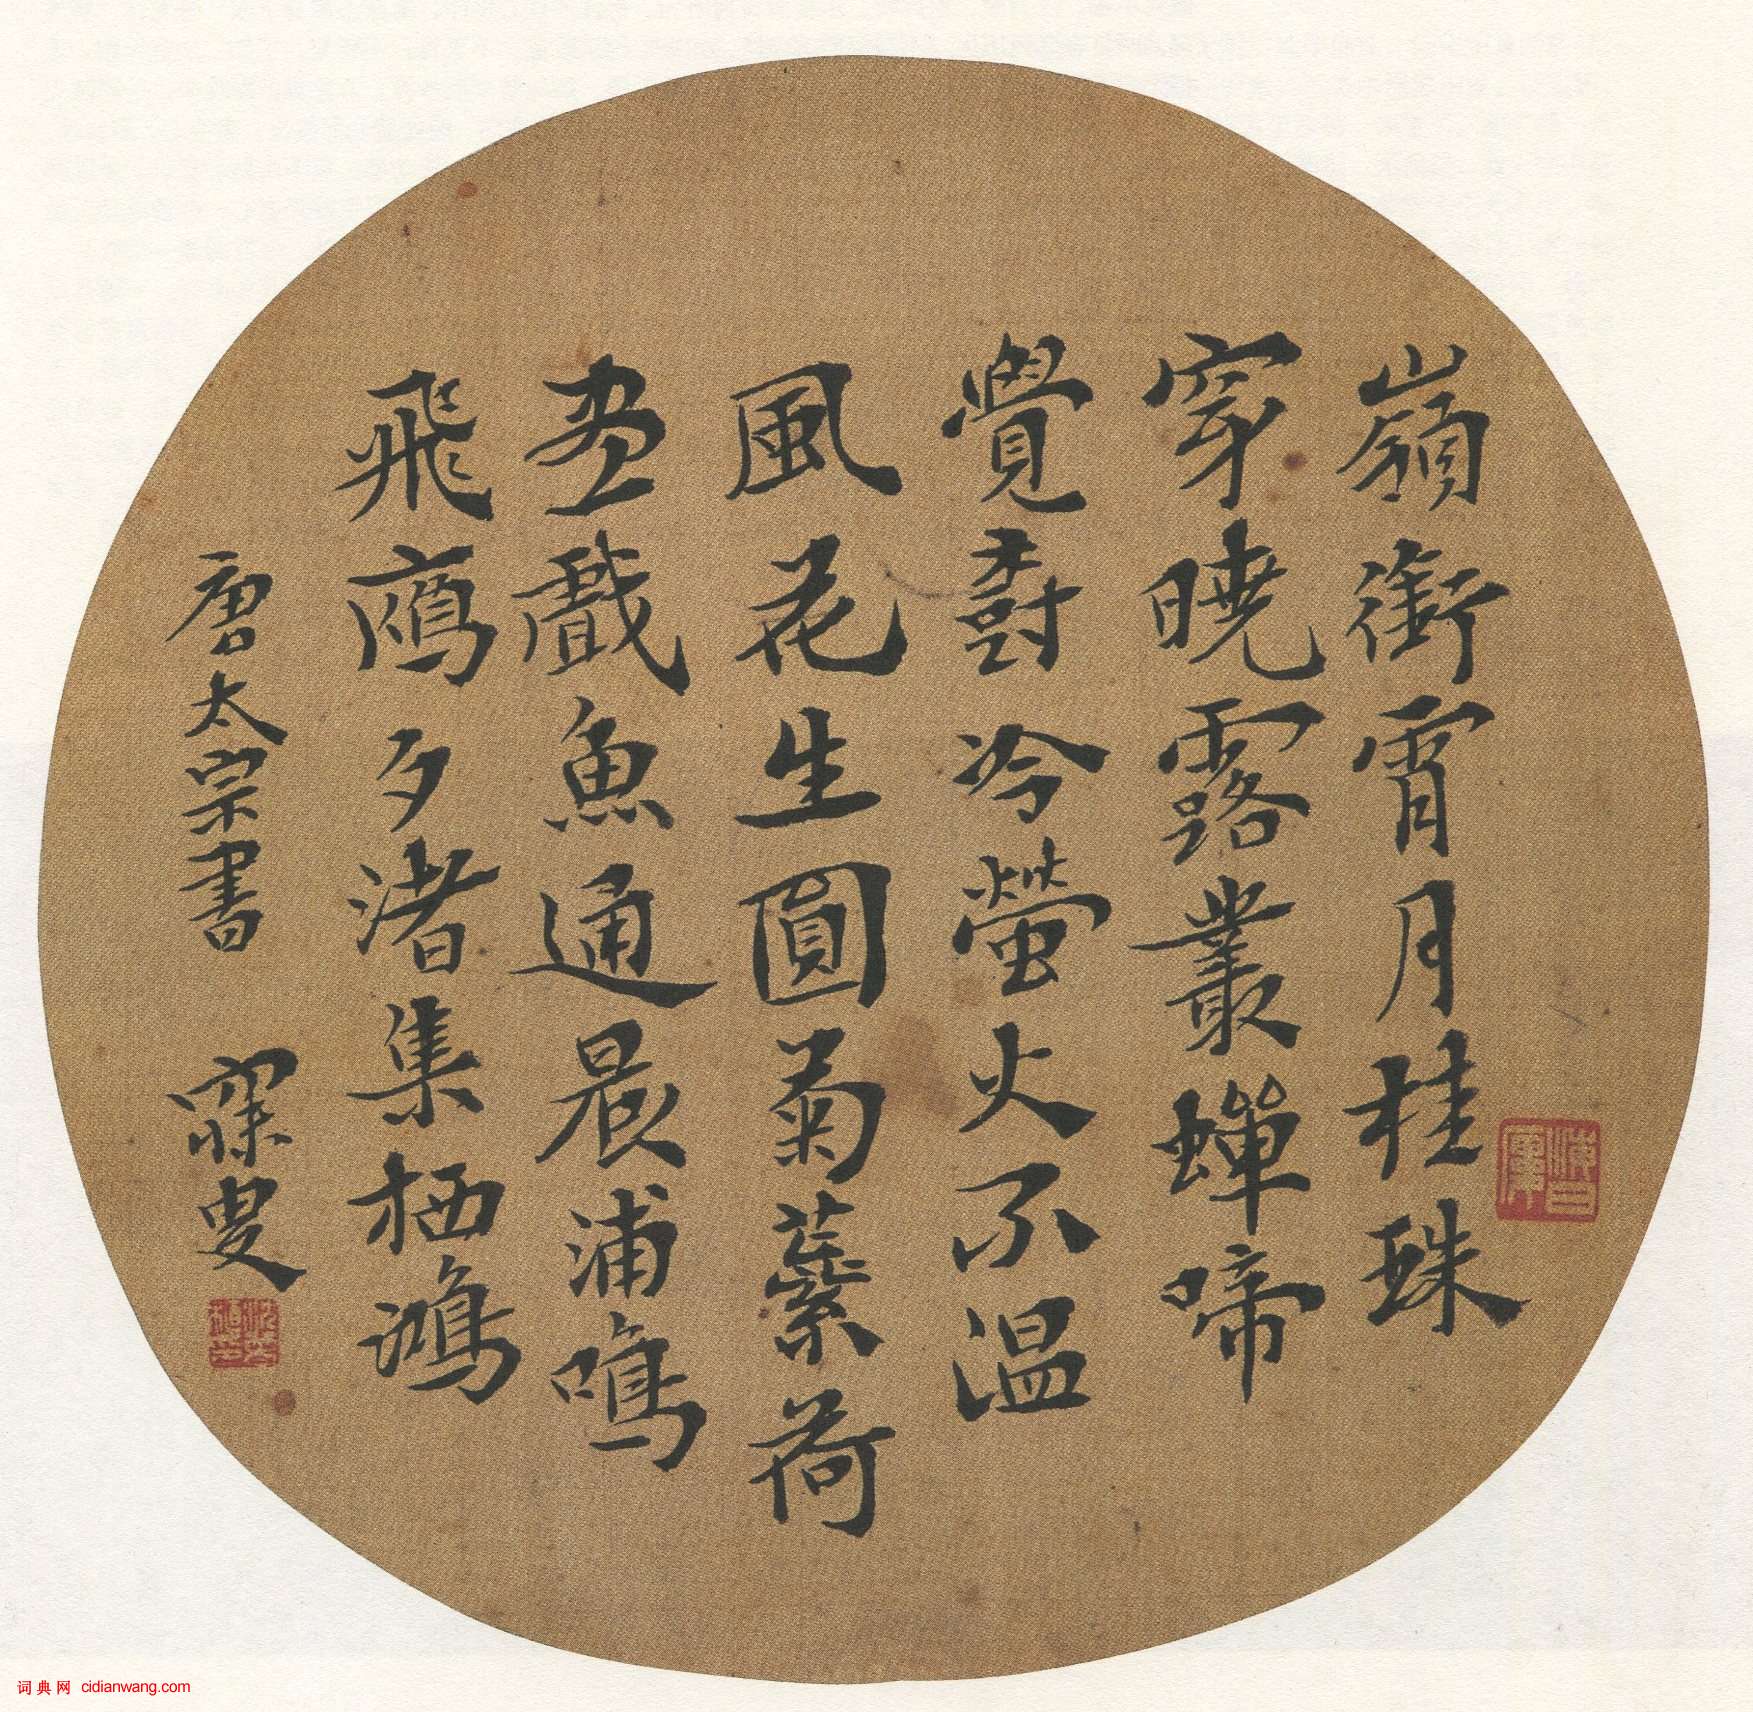 嶺銜宵月桂珠
穿曉露叢蟬啼
覺樹冷螢火不溫
風花生圓菊蘂荷
盡戲魚通晨浦鳴
飛雁夕渚集栖鴻
唐太宗書 寐叟
词典网 cidianwang.com